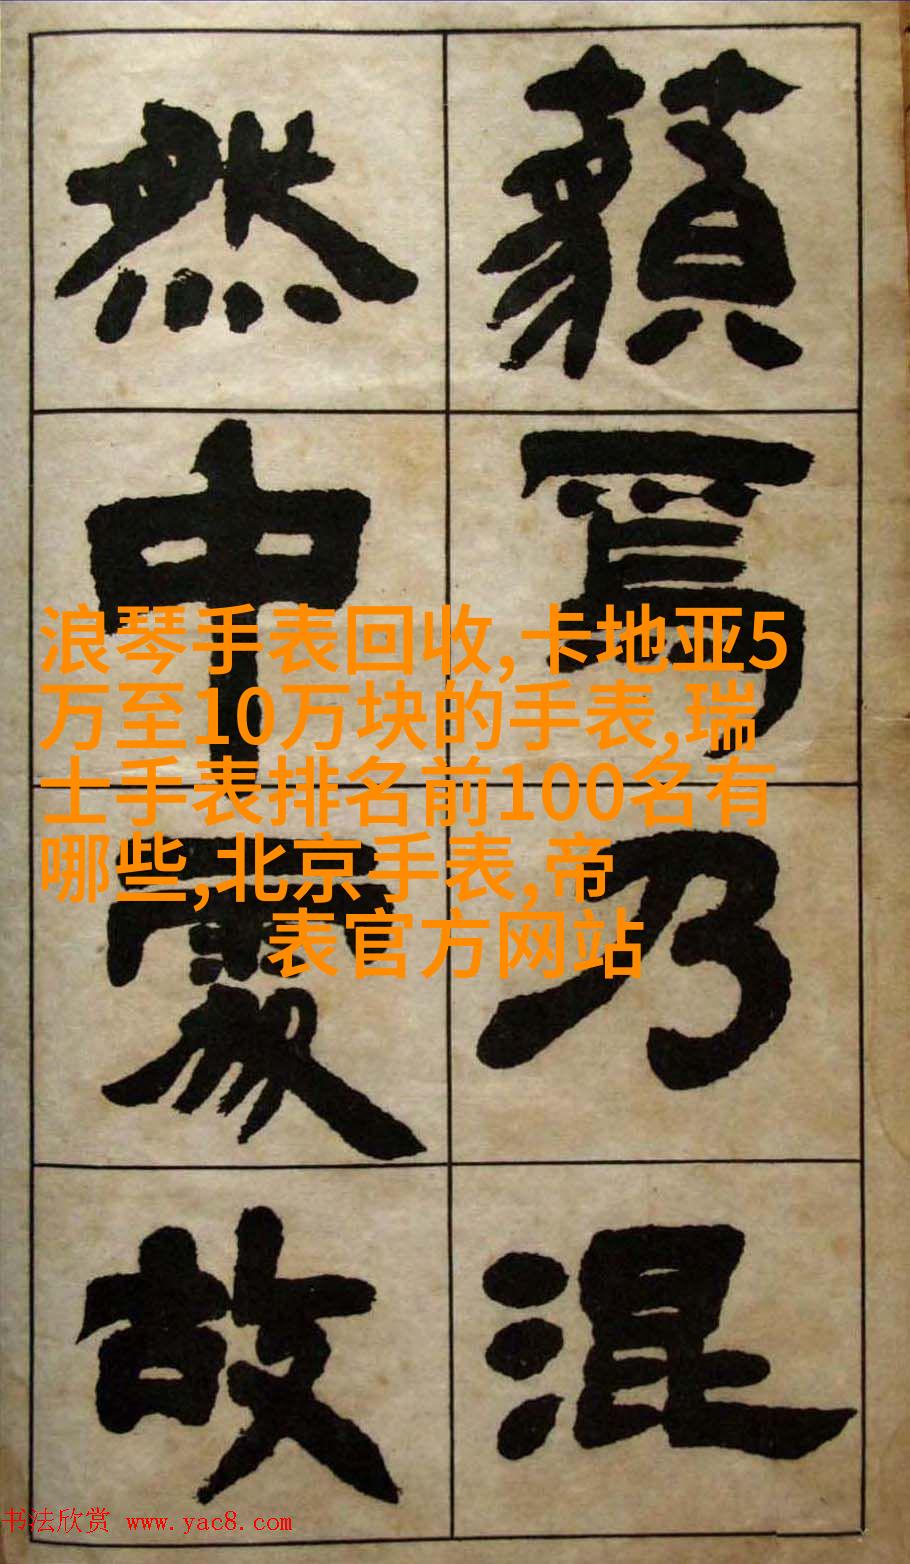 焉乃混
然中故
浪琴手表回收,卡地亚5
万至10万块的手表,瑞
士手表排名前100名有
哪些,北京手表,帝
表官方网站
书法欣赏 www.yac8.com